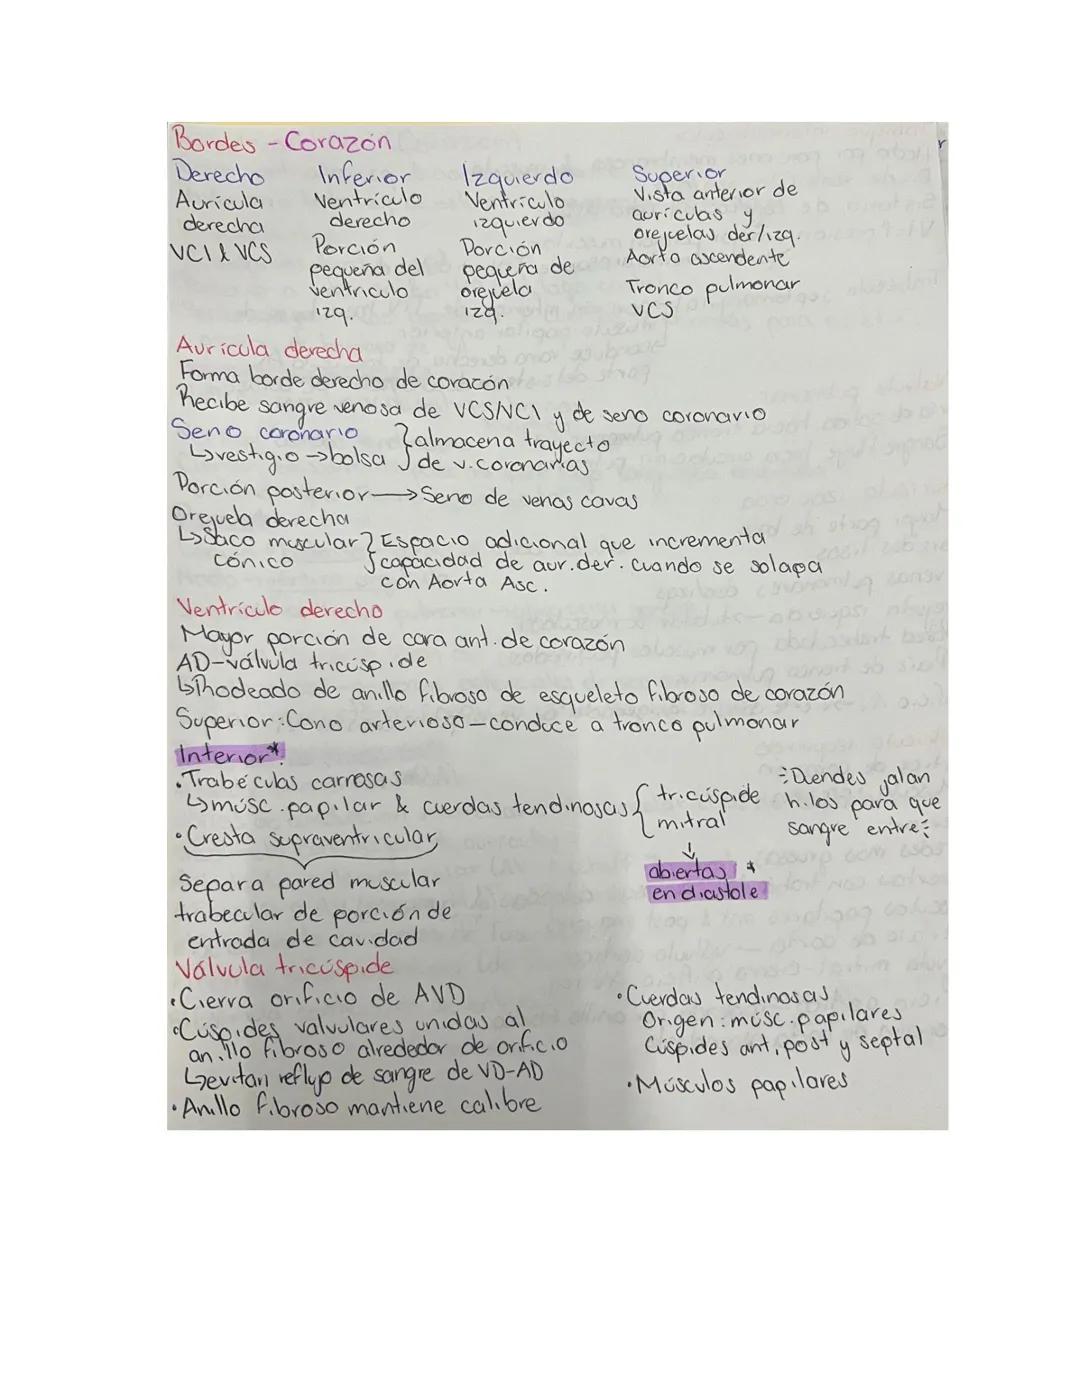 Bordes - Corazón
Derecho
Aurícula
derecha
VCI & VCS
Inferior
Ventrículo
derecho
Porción
pequeña del
ventrículo
izq.
Izquierdo
Ventrículo
izquierdo
Porción
pequeña de
orejuela
izq.
Superior
Vista anterior de
aurículas y
orejuelas der/izq.
Aorta ascendente
Tronco pulmonar
VCS
Aurícula derecha
Forma borde derecho de coracón
Recibe sangre venosa de VCS/VCI y de seno coronario
Seno coronario } almacena trayecto
↳vestigio → bolsa } de v. coronarias
Porción posterior → Seno de venas cavas
Orejuela derecha
↳Saco muscular } Espacio adicional que incrementa
cónico } capacidad de aur. der. cuando se solapa
con Aorta Asc.
Ventrículo derecho
Mayor porción de cara ant. de corazón
AD-válvula tricúspide
↳Rhodeado de anillo fibroso de esqueleto fibroso de corazón
Superior: Cono arterioso - conduce a tronco pulmonar
Interior*:
• Trabéculas carnosas
↳músc. papilar & cuerdas tendinosas { tricúspide
mitral
↓
abiertas *
en diastole
Duendes jalan
hilos para que
sangre entre
• Cresta supraventricular
Separa pared muscular
trabecular de porción de
entrada de cavidad
Válvula tricúspide
• Cierra orificio de AVD
• Cúspides valvulares unidas al
anillo fibroso alrededor de orificio
↳evitan reflujo de sangre de VD-AD
• Anillo fibroso mantiene calibre
• Cuerdas tendinosas
Origen: músc. papilares
Cúspides ant, post y septal
• Músculos papilares